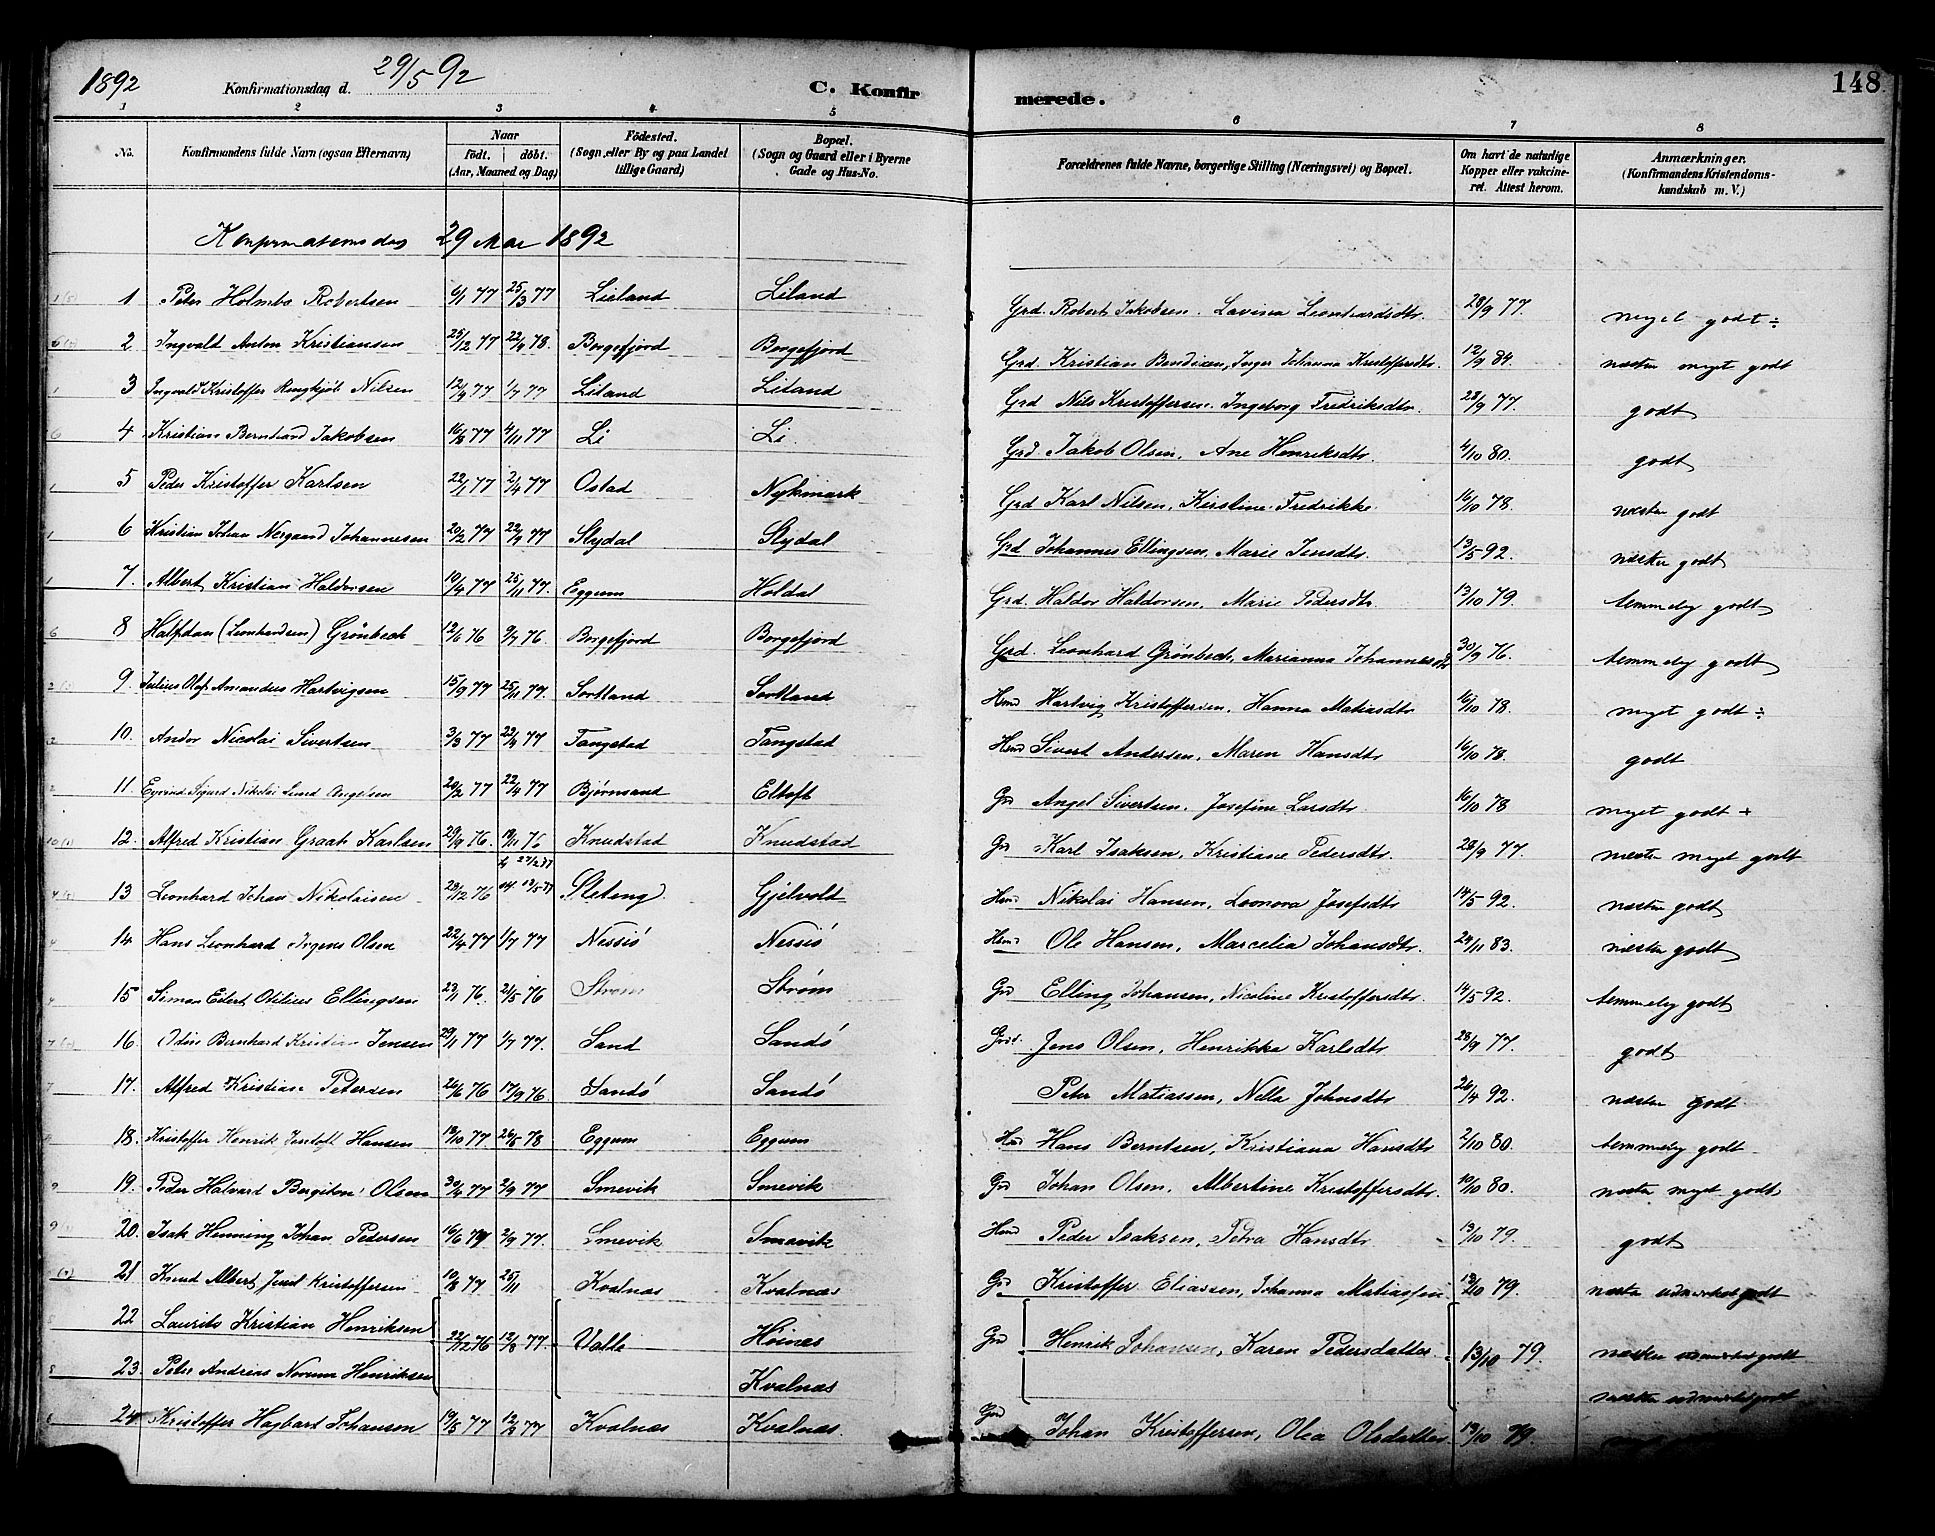 1892 Konfirmationsdag d. 29/5 92 C. Konfirmerede. 148
1 2 3 4 5 6 7 8
No. Konfirmandens fulde Navn (ogsaa Efternavn) Naar födt. döbt. (Aar, Maaned og Dag) Födested. (Sogn eller By og paa Landet tillige Gaard) Bopæl. (Sogn og Gaard eller i Byerne Gade og Hus-No. Forældrenes fulde Navne, borgerlige Stilling (Næringsvei) og Bopæl. Om havt de naturlige Kopper eller vakcineret. Attest herom. Anmærkninger. (Konfirmandens Kristendomskundskab m. V.)
Konfirmationsdag 29 Mai 1892
1 Peter Holmbo Robertsen 6/1 77 25/3 77 Lieland Liland Grd. Robert Jakobsen. Lavina Leonhardsdtr. 28/9 77. meget godt ÷
2 Ingvald Anton Kristiansen 25/12 77 22/4 78. Borgefjord Borgefjord Grd. Kristian Bendixen, Inger Johanna Kristoffersdtr. 12/9 84. næsten meget godt
3 Ingvald Kristoffer Nilsen 77 1/7 77 Liland Liland Grd Nils Kristoffersen. Ingeborg Fredriksdtr. 28/9 77. godt
4 Kristian Berntsand Jakobsen 16/8 77 4/11 77 Li Li. Grd. Jakob Olsen, Ane Henriksdtr. 4/10 80. godt
5 Peder Kristoffer Karlsen 22/1 77 2/4 77 Ostad Nykmark Grd Karl Nilsen, Kirstine Fredrikke 16/10 78. næsten godt
6 Kristian Johan Nergaard Johannesen 20/2 77 22/4 77 Slydal Slydal Grd Johannes Ellingsen, Marie Jensdtr. 13/5 92. næsten godt
7. Albert Kristian Haldorsen 10/4 77 25/11 77. Eggum Holdal Grd. Haldor Haldorsen, Marie Pedersdtr. 13/10 79. temmelig godt
8 Halfdan (Leonhardsen) Grönbech 12/6 76 9/7 76. Borgefjord Borgefjord Grd Leonhard Grønbech, Marianna Johannesdtr 30/9 76. temmelig godt
9 Julius Olaf Amandus Hartvigsen 15/9 77 25/11 77. Sortland Sortland Hmd Hartvig Kristoffersen, Hanna Matiasdtr 16/10 78. meget godt ÷
10. Andor Nicolai Sivertsen 3/3 77 22/4 77 Tangstad Tangstad Hmd Sivert Andersen, Maren Hansdtr 16/10 78. godt
11. Eyvind Sigurd Nikolai Lund Angelsen 20/2 77 22/4 77 Bjørnsand Eltoft Grd Angel Sivertsen. Josefine Larsdtr 16/10 78 meget godt +
12. Alfred Kristian Graah Karlsen 29/9 76. 19/11 76 Knudstad Knudstad Grd Karl Isaksen, Kristiane Pedersdtr. 28/9 77. næsten meget godt
13 Leonhard Johan Nikolaisen 23/12 76 13/5 77 Steteng Gjelvold Hmd Nikolai Hansen, Leonora Josefsdtr 14/5 92. næsten godt
14 Hans Leonhard Olsen 22/4 77 1/7 77 Nessiö Nessiö Hmd Ole Hansen, Marcelia Johansdtr. 24/11 83. næsten godt
15 Simon Edert Otilius Ellingsen 23/1 76. 21/5 76 Strøm Strøm Grd Elling Johansen, Nicoline Kristoffersdtr. 14/5 92. temmelig godt
16. Odin Bernhard Kristian Jensen 29/1 77 1/7 77. Sand Sandö Grd. Jens Olsen, Henrikka Karlsdtr 28/9 77. godt
17. Alfred Kristian Petersen 26/6 76 17/9 76 Sandö Sandö Peter Matiassen, Nella Johnsdtr 26/4 92. næsten godt.
18. Kristoffer Henrik Hansen 19/10 77. 26/5 78 Eggum Eggum Hmd Hans Berntsen, Kristiana Hansdtr 2/10 80. temmelig godt
19. Peder Halvard Bergiton Olsen 30/4 77 2/9 77 Smevik Smevik Grd Johan Olsen, Albertine Kristoffersdtr. 10/10 80. næsten meget godt
20. Isak Henning Johan Pedersen 16/6 77 2/9 77. Smevik Smevik Hmd Peder Isaksen, Petra Hansdtr 13/10 79. godt
21 Knud Albert Juul Kristoffersen 10/8 77 25/11 Kvalnæs Kvalnæs Grd Kristoffer Eliassen, Johanna Matiassen 13/10 79. næsten udmerket godt
22 Laurits Kristian Henriksen 22/12 76 12/8 77. Valle Höinæs Grd Henrik Johansen, Karen Pedersdatter 13/10 79. næsten udmerket godt
23. Peter Andreas Norum Henriksen Kvalnæs næsten udmerket godt
24 Kristoffer Hagbart Johansen 19/5 77 12/8 77 Kvalnæs Kvalnæs. Grd Johan Kristoffersen, Olea Olsdatter 13/10 79.